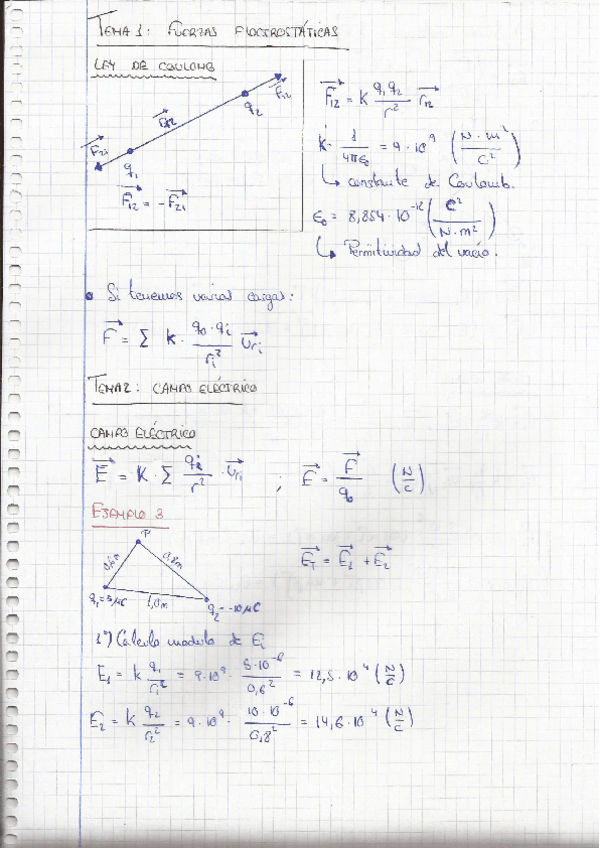 TEMA 1: FUERZAS ELECTROSTÁTICAS
LEY DE COULOMB
F₁₂
q₂
F₂₁
q₁
F₁₂ = -F₂₁
F₁₂ = K q₁q₂/r² r₁₂
K = 1/4πε₀ = 9·10⁹ (N·m²/C²)
↳ constante de Coulomb.
ε₀ = 8,854·10⁻¹² (C²/N·m²)
↳ Permitividad del vacío.
• Si tenemos varias cargas:
F = Σ K · q₀·qᵢ/rᵢ² Urᵢ
TEMA 2: CAMPO ELÉCTRICO
CAMPO ELÉCTRICO
E = K·Σ qᵢ/r² · Urᵢ ; E = F/q₀ (N/C)
EJEMPLO 3
P
0,6m
0,8m
q₁=5μC
1,0m
q₂=-10μC
E_T = E₁ + E₂
1º) Calculo modulo de Eᵢ
E₁ = k q₁/r₁² = 9·10⁹ · 5·10⁻⁶/0,6² = 12,5·10⁴ (N/C)
E₂ = K q₂/r₂² = 9·10⁹ · 10·10⁻⁶/0,8² = 14,6·10⁴ (N/C)